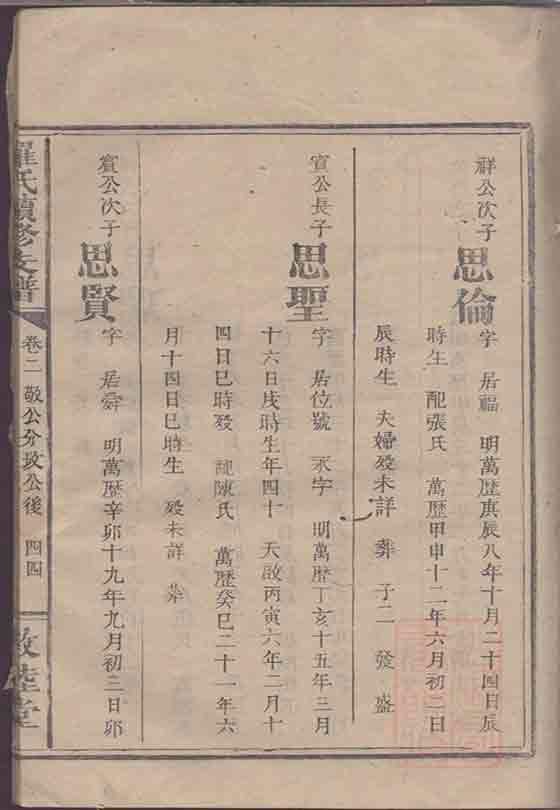 祥公次子
思倫
字 居福 明萬歷庚辰八年十月二十四日辰
時生 配張氏 萬歷甲申十二年六月初二日
辰時生 夫婦殁未詳 葬 子二 發 盛
賓公長子
思聖
字 居位號 永字 明萬歷丁亥十五年三月
十六日戌時生年四十 天啟丙寅六年二月十
四日巳時殁 配陳氏 萬歷癸巳二十一年六
月十四日巳時生 殁未詳 葬
賓公次子
思賢
字 居舜 明萬歷辛卯十九年九月初三日卯
羅氏續修支譜
卷二 敬公分政公後 四四
敦睦堂